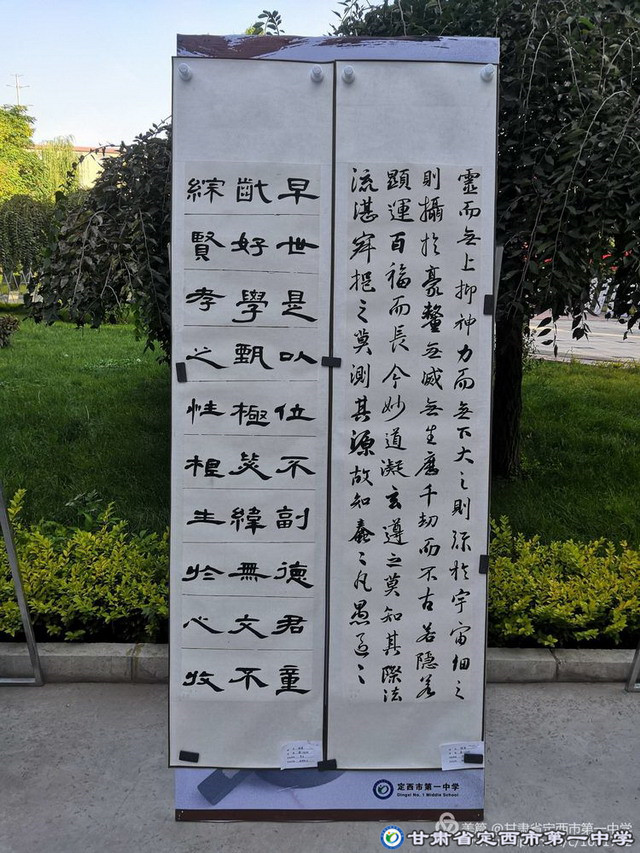 靈而無上抑神力而無下大之則弥於宇宙細之
則攝於豪釐無滅無生歷千劫而不古若隱若
顯運百福而長今妙道凝玄遵之莫知其際法
流湛寂挹之莫測其源故知蠢〻凡愚區〻
早世是以位不副德君童
齔好學甄極毖緯無文不
綜賢孝之性根生於心收
定西市第一中学
Dingxi No. 1 Middle School
美篇 @甘肃省定西市第一中学
甘肃省定西市第一中学